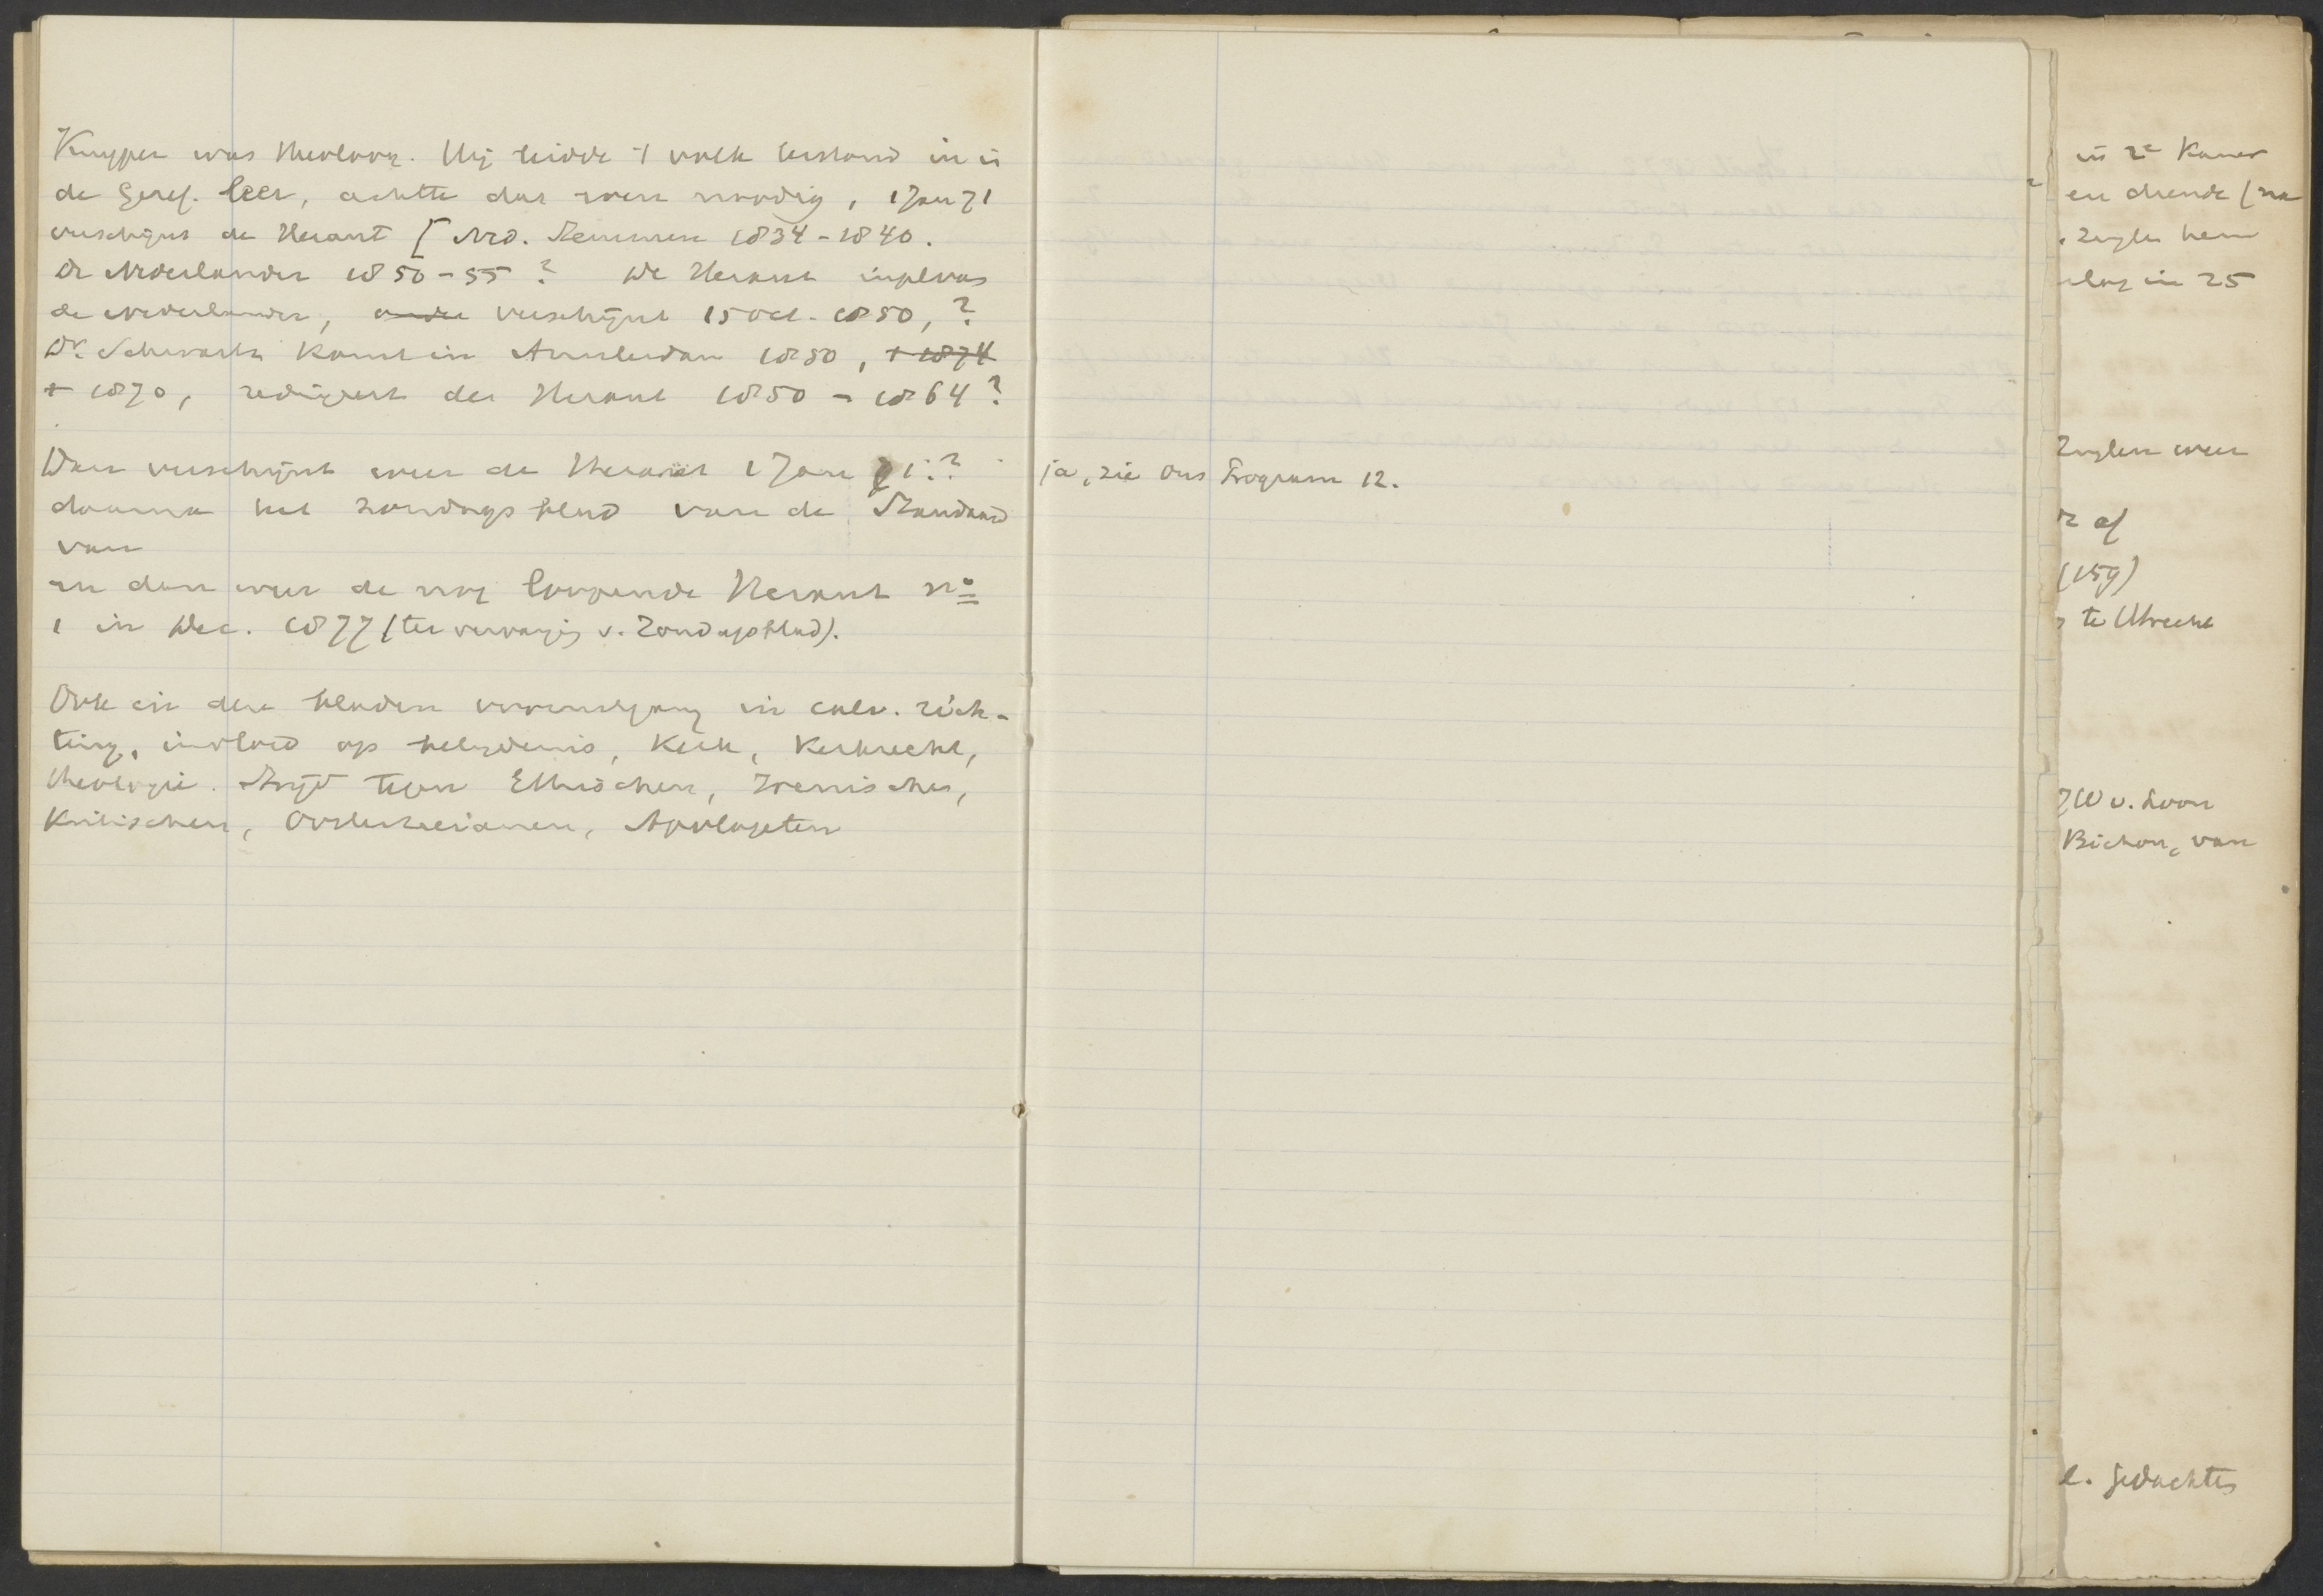 Kuyper was theoloog. Hij leidde 't volk bestand in in
de Geref. leer, achtte dat zeer noodig, 1 Jan 71
verschijnt de Heraut [Ned. Stemmen 1834-1840.
De Nederlander 1850-55? De Heraut inplaas
de Nederlander, verschijnt 15 Oct. 1850,?
Dr. Schwartz komt in Amsterdam 1850, + 1874
+ 1870, redigeert der Heraut 1850 - 1864?
Dan verschijnt weer de Heraut 1 Jan 71:?
daarna het zondagsblad van de Standaard
van
en dan weer de nog loopende Heraut no
1 in Dec. 1877 (ter vervangig v. Zondagsblad).
Ook in deze bladen vooruitgang in calv. rich-
ting, invloed op belijdenis, Kerk, Kerkrecht,
theologie. Strijd tegen Ethischen, Irenischen,
Kritischen, Apologeten
ja, zie Ons Program 12.
in 2e Kamer
hem
in 25
weer
af
te Utrecht
v. Loon
Bichon, van
e. gedachtes